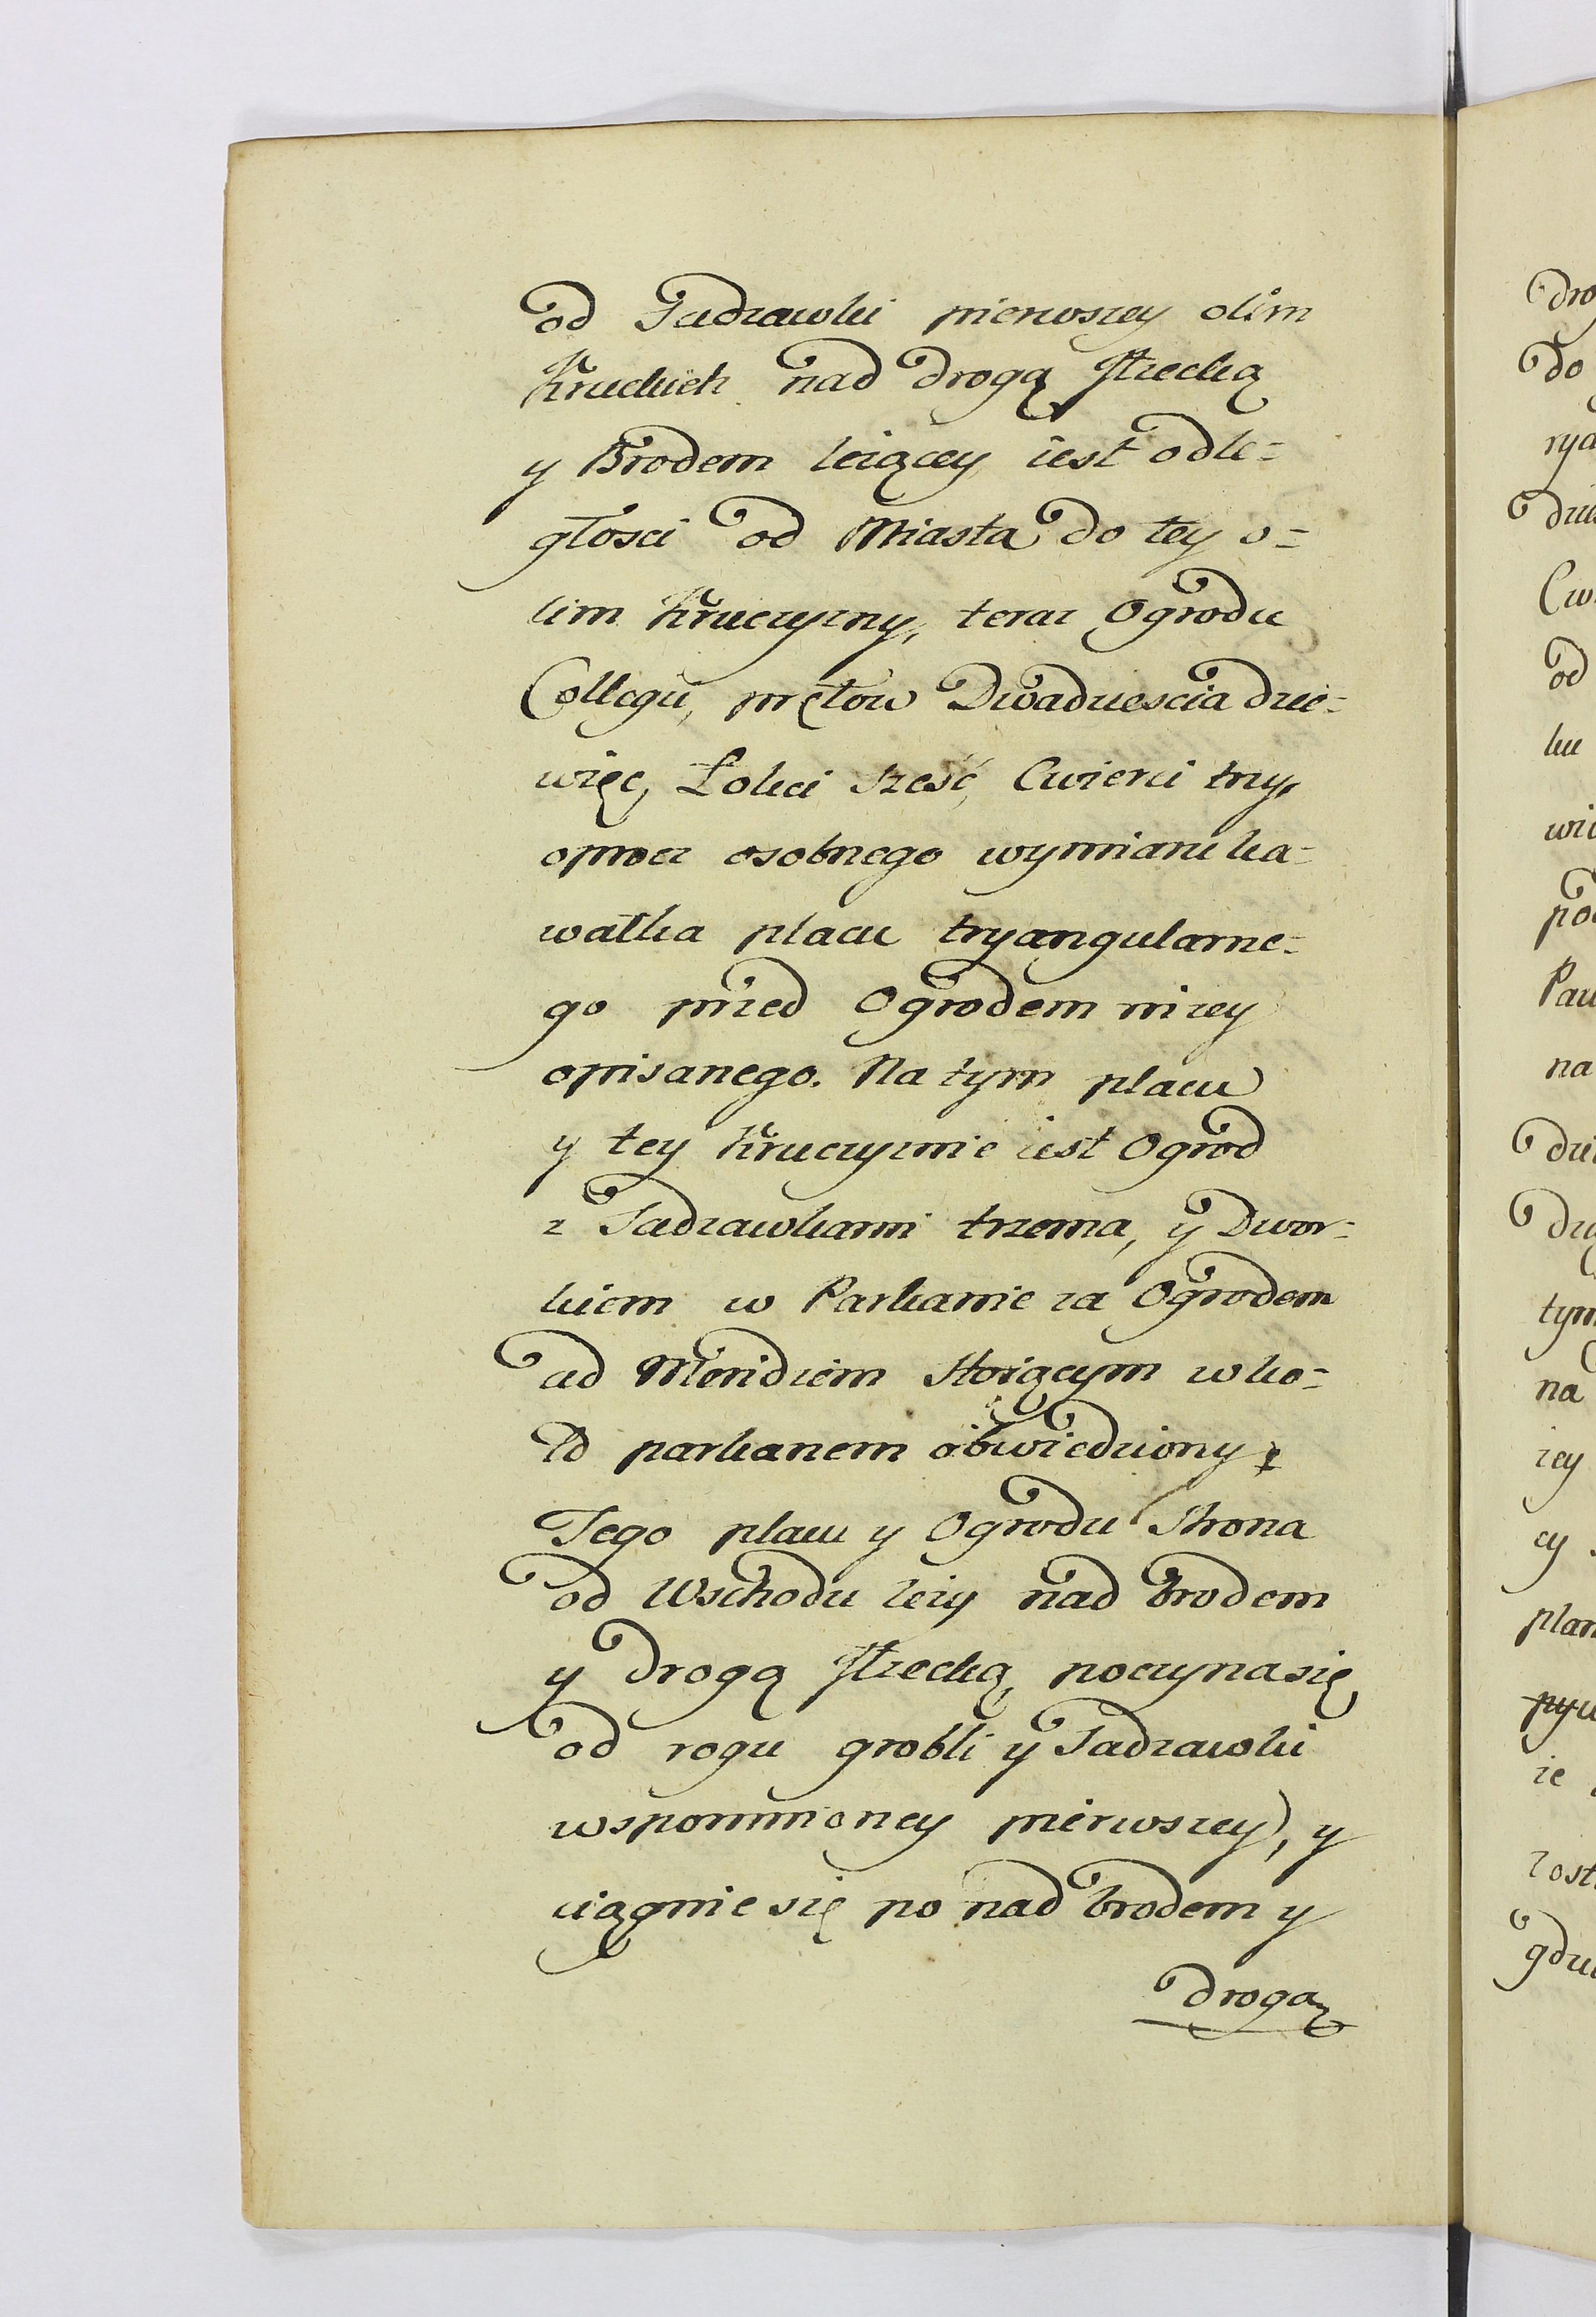 od Sadzawki pierwszey olim
Kruckich nad drogą Strzecką
y Brodem leżącey iest odle=
głosci od Miasta do tey o=
lim Kruczyzny, teraz Ogrodu
Collegii, prętow Dwadziescia dzie=
więc, Lokci sześć, Cwierci trzy,
oprocz osobnego wymiaru ka=
wałka placu tryangularne=
go przed Ogrodem niżey
opisanego. Na tym placu
y tey Kruczyznie iest Ogrod
z Sadzawkami trzema, y Dwor=
kiem w Parkanie za Ogrodem
ad Meridiem Stoiącym w ko=
ło parkanem obwiedziony.
Tego placu y Ogrodu Strona
od Wschodu leży nad brodem
y drogą Strzecką, poczyna się
od rogu grobli y Sadzawki
wspomnioney pierwszey, y
ciągnie się po nad brodem y
drogą
dro
do
rya
dzi
Cw
od
ku
wię
po
Pau
na
dzi
dzi
tym
na
zey
cy
plan
ze
zost
gdzi